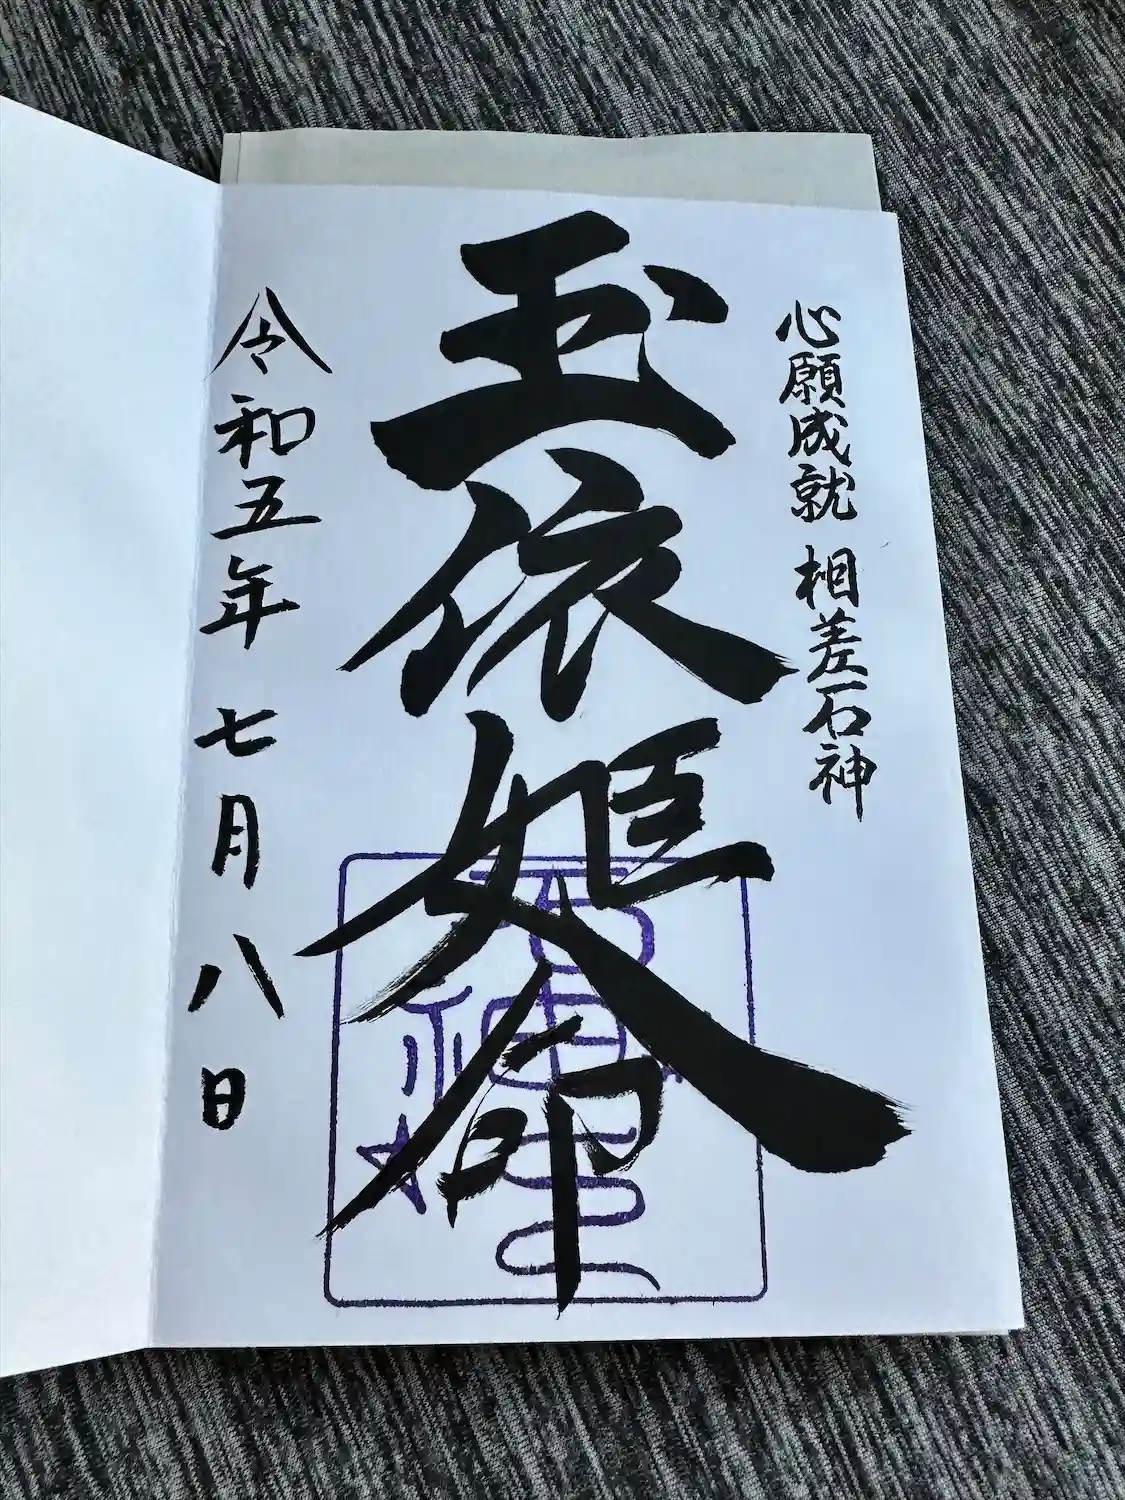 心願成就 相差石神
玉依姫命
令和五年七月八日
石神